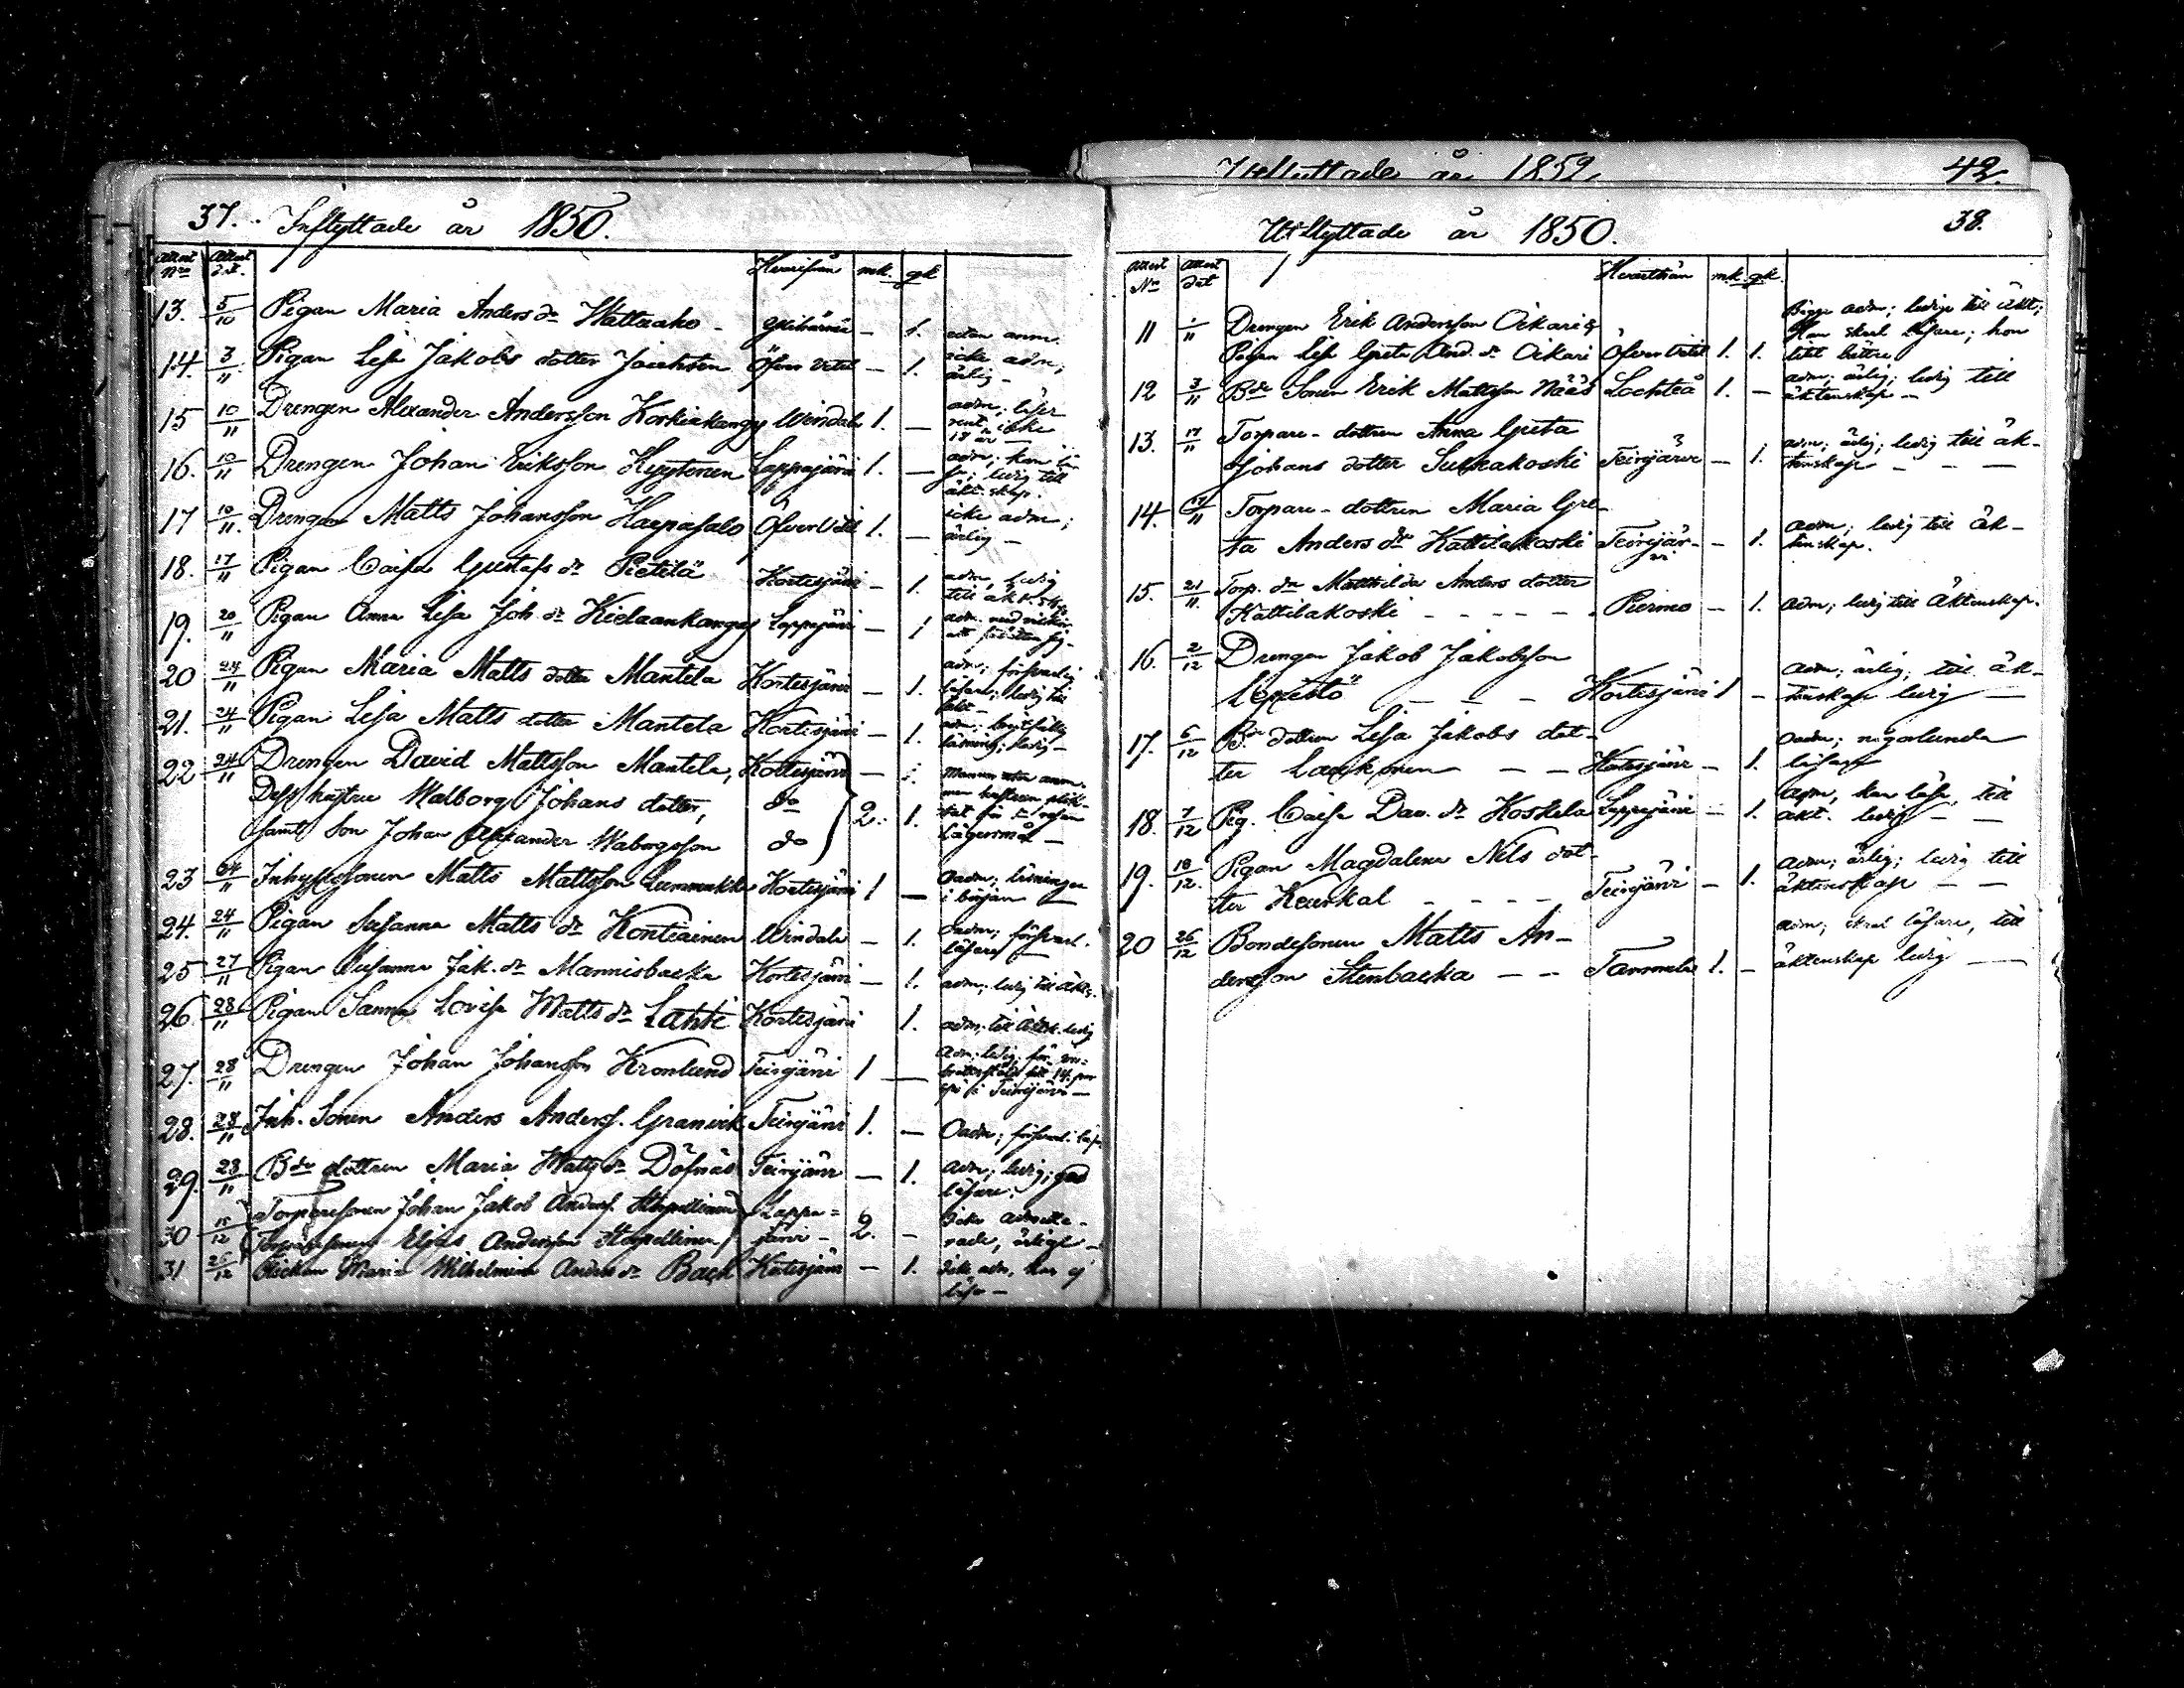 37. Inflyttade år 1850.
Attest Nro Attest dat. Hvarifrån mk. qk
13. 5/10 Pigan Maria Anders dr Wattaaho - — 1. utan anm.
14. 3/11 Pigan Lisa Jakobs dotter Öfver Vetil — 1. icke adm;
ärlig —
15 10/11 Drengen Alexander Andersson Korkiakangas Windala 1. — adm; läser
rent; icke
18 år —
16. 10/11 Drengen Johan Eriksson Kyytönen Lappajärvi 1. — adm; kan lä-
sa; ledig till
äkt.skap.
17 10/11 Drengen Matts Johansson Haapasalo Öfver Vetil 1. — icke adm;
ärlig —
18. 17/11 Pigan Caisa Gustafs dr Pietilä Kortesjärvi — 1. adm, ledig
till äkt.
19. 20/11 Pigan Anna Lisa Joh. dr Kielaankangas Lappajärvi — 1 adm.
20 24/11 Pigan Maria Matts dotter Mantela Kortesjärvi — 1. adm; försvarlig
läsare; ledig till
äkt —
21. 24/11 Pigan Lisa Matts dotter Mantela Kortesjärvi — 1. adm;
läsning; ledig —
22 24/11 Drengen David Mattsson Mantela, Kortesjärvi
Dess hustru Walborg Johans dotter, do 2. 1.
samt Son Johan Alexander Waborgsson do Lägersmål —
23 24/11 Inhysesonen Matts Mattsson Lummukka Kortesjärvi 1 — Oadm; läsningen
i början —
24. 24/11 Pigan Susanna Matts dr Kontiainen Windala — 1. Oadm; försvarl.
läsare —
25 27/11 Pigan Susanna Jak. dr Mannisbacka Kortesjärvi — 1. adm; ledig till äkts.
26 28/11 Pigan Sanna Lovisa Matts dr Lahti Kortesjärvi 1. adm; till äkt. ledig
27. 28/11 Drengen Johan Johansson Kronlund Teirijärvi 1 — Adm; ledig; för
i Teirijärvi —
28. 28/11 Inh. Sonen Anders Anderss. Granvik Teirijärvi 1. — Oadm; försvarl. läs.
29. 28/11 Bde dottren Maria Matts dr Döfnäs Teirijärvi — 1. Adm; ledig; god
läsare.
30 15/12 Torparesonen Johan Jakob Anderss. Lappa-
Torparesonen Elias Andersson järvi — 2. — Icke admitte-
rade, ärlige —
31 26/12 Flickan Maria Wilhelmina Anders dr Back Kortesjärvi — 1. Icke adm, kan ej
läsa —
Utflyttade år 1859. 42.
Utflyttade år 1850. 38.
Attest No Attest dat Hvarthän mk. qk.
11 1/11 Drengen Erik Andersson Oikari &
Pigan Lisa Greta And. dr Oikari Öfver Vetil 1. 1. Bägge adm; ledige till äkt;
Han skral läsare; hon
litet bättre
12 3/11 Bde Sonen Erik Mattsson Nääs Lochteå 1. — adm; ärlig; ledig till
äktenskap —
13. 17/11 Torpare-dottren Anna Greta
Johans dotter Sulkakoski Teirijärvi — 1. adm; ärlig; ledig till äk-
tenskap — — —
14. 17/11 Torpare-dottren Maria Gre-
ta Anders dr Kattilakoski Teirijär-
vi — 1. adm; ledig till äk-
tenskap.
15. 21/11 Torp. dr Matthilda Anders dotter
Kattilakoski - - - - - Purmo — 1. adm; ledig till äktenskap.
16. 2/12 Drengen Jakob Jakobsson
Lepistö — — — Kortesjärvi 1 — Adm; ärlig; till äk-
tenskap ledig —
17. 6/12 Be dottren Lisa Jakobs dot-
ter — — Kortesjärvi — 1. Oadm; någorlunda
läsare
18. 7/12 Pig. Caisa Dav. dr Koskela Lappajärvi — 1. Adm, kan läsa, till
äkt. ledig — —
19. 18/12. Pigan Magdalena Nils dot-
ter - - - - Teirijärvi — 1. Adm; ärlig; ledig till
äktenskap — —
20 26/12 Bondesonen Matts An-
dersson Stenbacka — — Tammela 1. — adm; skral läsare, till
äktenskap ledig —